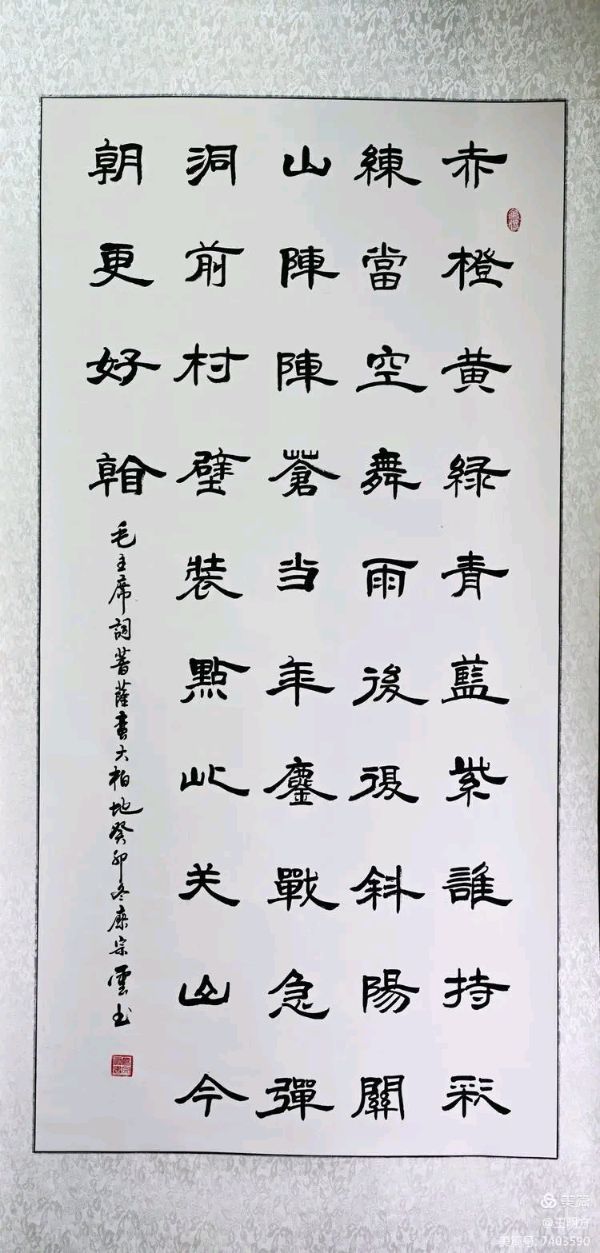 赤橙黄緑青藍紫誰持彩
練當空舞雨後復斜陽關
山陣陣蒼当年鏖戰急彈
洞前村壁裝點此关山今
朝更好看
毛主席詞菩薩蛮大柏地癸卯冬宗雲书
美篇
美篇号:7403590